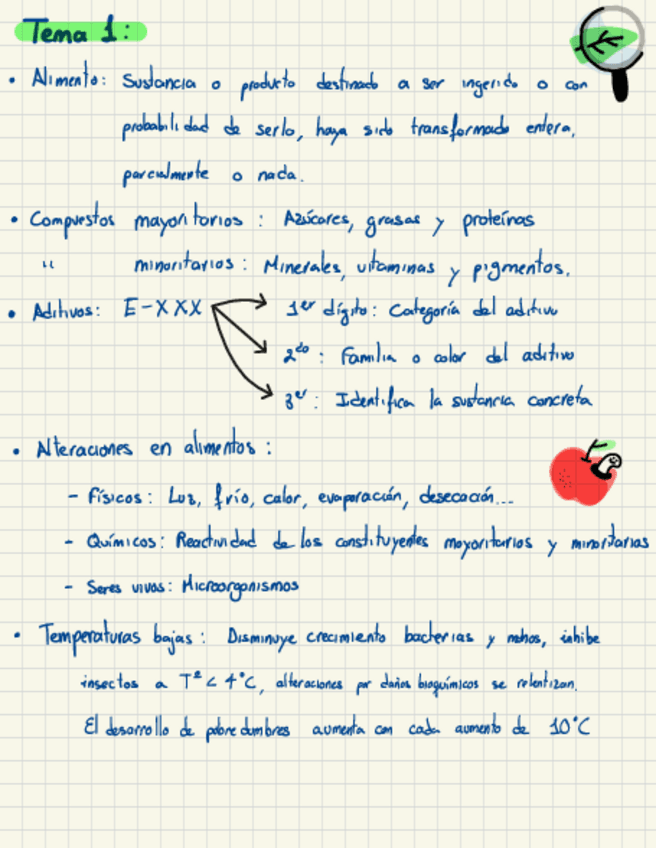 Tema 1:
• Alimento: Sustancia o producto destinado a ser ingerido o con
probabilidad de serlo, haya sido transformado entera,
parcialmente o nada.
• Compuestos mayoritarios: Azúcares, grasas y proteínas
" minoritarios: Minerales, vitaminas y pigmentos.
• Aditivos: E-XXX
1er dígito: Categoría del aditivo
2do: Familia o color del aditivo
3er: Identifica la sustancia concreta
• Alteraciones en alimentos:
- Físicos: Luz, frío, calor, evaporación, desecación...
- Químicos: Reactividad de los constituyentes mayoritarios y minoritarias
- Seres vivos: Microorganismos
• Temperaturas bajas: Disminuye crecimiento bacterias y mohos, inhibe
insectos a Tª < 4°C, alteraciones por daños bioquímicos se relentizan.
El desarrollo de podredumbres aumenta con cada aumento de 10°C